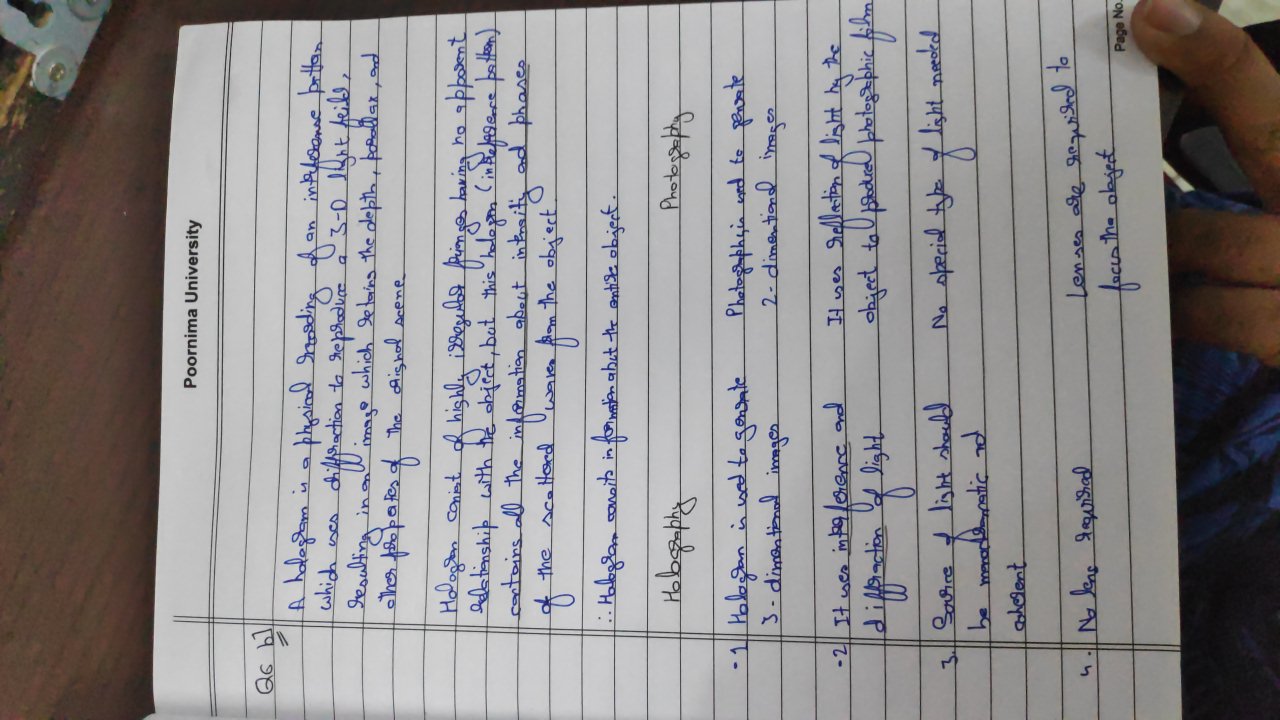 Poornima University
Q6 b]
A hologram is a physical recording of an interference pattern
which uses diffraction to reproduce a 3-D light feild,
resulting in an image which retains the depth, parallax, and
other properties of the original scene
Hologram consist of highly irregular fringes having no apparent
relationship with the object, but this hologram (interference pattern)
contains all the information about intensity and phases
of the scattered waves from the object.
∴ Hologram consits information abut the entire object.
Holography Photography
- 1 Hologram is used to generate Photography is used to generate
3 - dimentional images 2 - dimentional images
- 2 It uses interference and It uses reflection of light by the
diffraction of light object to produce photographic film
3. Source of light should No special type of light needed
be monochromatic nd
coherent
4. No lens required Lenses are required to
focus the object
Page No.